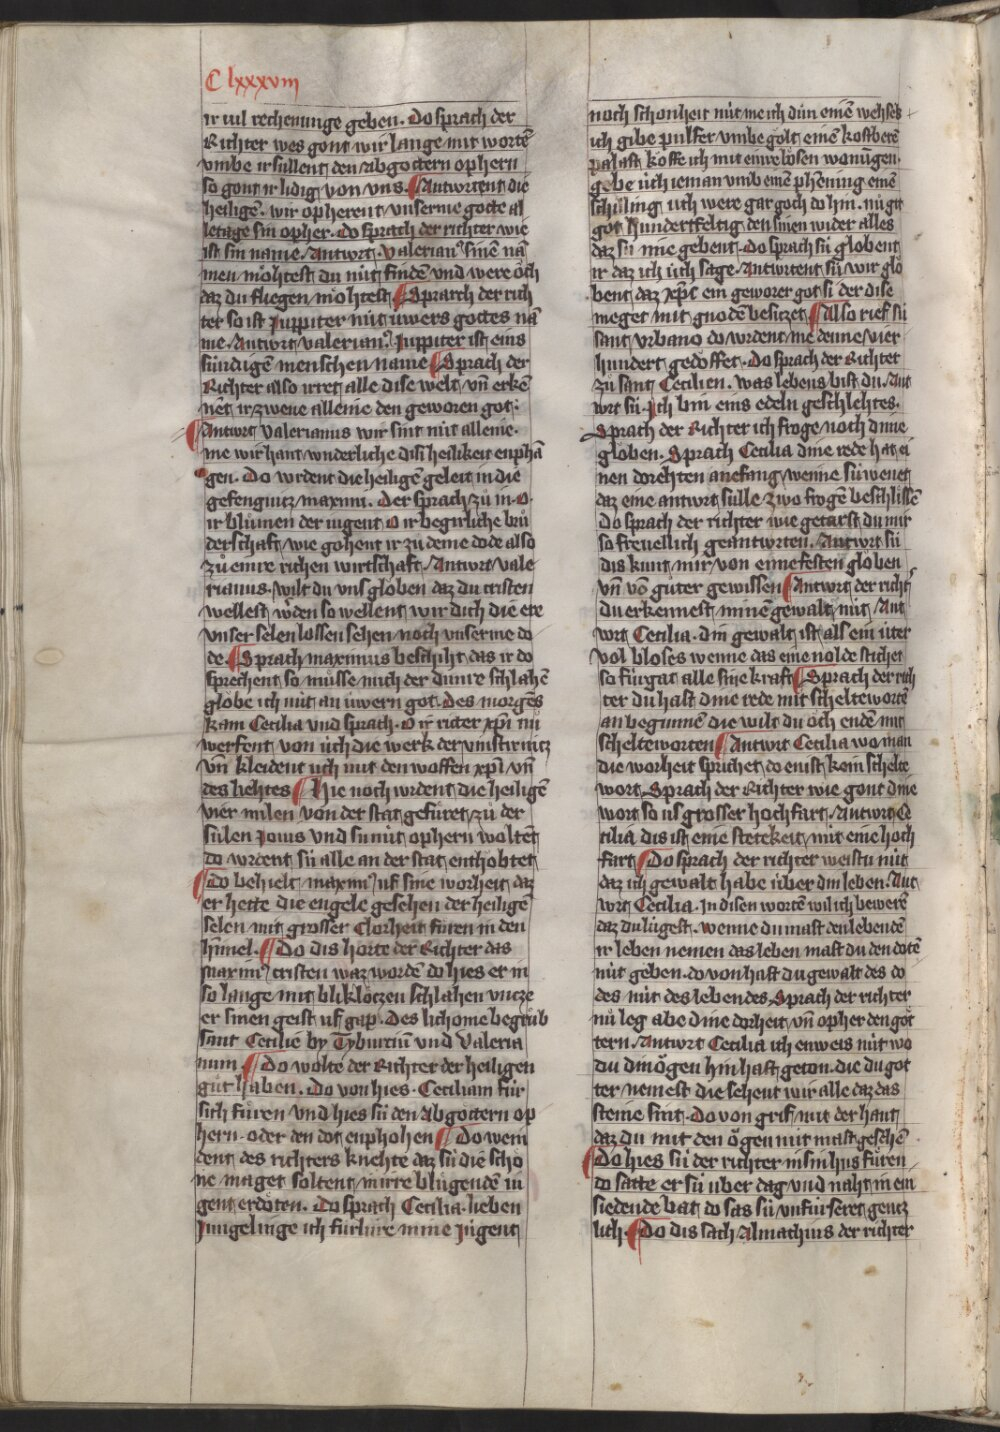 C lxxxviii
ir vil rechenunge geben. Do sprach der
Richter wes gont wir lange mit wortē
vmbe ir sullent den abgottern ophern
so gont ir lidig von vns. Antwurtent die
heiligē. wir opherent vnserme gotte al
letage sin opher. Do sprach der richter wie
ist sin name. Antwrt. valerian⁹ sinē nā
men moͤhtest du nuͤt findē vnd were oͤch
daz du fliegen moͤhtest Sprach der rich
ter so ist Juppiter nuͤt uͤwers gottes nā
me. Antwrt valerian⁹. Juppiter ist eins
suͤndigē menschen name Sprach der
Richter also irret alle dise welt vn̄ erkē
nēt ir zwene alleine den geworen got.
Antwrt valerianus wir sint nuͤt alleine.
me wir hant wnderliche dis heilikeit enphā
gen. Do wrdent die heiligē geleit in die
gefengnuͤcz maximi. Der sprach zuͦ in. O.
ir bluͦmen der iugent O ir begirliche bruͦ
derschaft, wie gohent ir zuͦ deme dode also
zuͦ einre richen wirtschaft. Antwrt vale
rianus. wilt du vns gloͤben daz du cristen
wellest wͤden so wellent wir dich die ere
vnser selen lossen sehen noch vnserme do
de. Sprach maximus beschiht das ir do
sprechent so muͤsse mich der dunre schlahē
gloͤbe ich nuͤt an uͤwern got. Des morgēs
kam Cecilia vnd sprach. O ir ritter xp̄i nu
werfent von uͤch die werk der vinstirnuͤcz
vn̄ kleident uͤch mit den woffen xp̄i vn̄
des liehtes Hie noch wrdent die heiligē
vier milen von der stat gefuͤret, zuͦ der
sulen Jouis vnd su nuͤt ophern woltēt
do wrdent suͤ alle an der stat enthoͤbtet
Do behielt maxim⁹ uf sine worheit daz
er hette die engele gesehen der heiligē
selen mit grosser Clorheit fuͤren in den
himel. Do dis horte der Richter das
maxim⁹ cristen waz wordē do hies er in
so lange mit bliklotzen schlahen vncze
er sinen geist uf gap. Des lichome begruͦb
sant Cecilie by Tyburcius vnd Valeria
num Do wolte der Richter der heiligen
guͦt haben. Do von hies. Ceciliam fuͤr
sich fuͤren vnd hies suͤ den Abgottern op
hern. oder den dot enphohen Do wein
dent des richters knehte daz suͤ die scho
ne maget soltent in irre bluͤgenden iu
gent erdoͤten. Do sprach Cecilia. lieben
Jungelinge ich fuͤrluͤre mine Jugent
noch schonheit nuͤt me ich duͦn einē wehsel
ich gibe pulfer vmbe golt einē kostberē
palast koͤffe ich mit einre boͤsen wonūgen.
gebe uͤch ieman vmb einē phēning einē
schilling uch were gar goch do hin. nu git
got hundertfeltig den sinen wider alles
daz suͤ nie gebent. Do sprach suͤ gloͤbent
ir daz ich uͤch sage. Antwrtent suͤ wir gloͤ
bent daz xp̄c ein geworer got si der dise
meget mit gnoden besitzet Also rief suͤ
sant vrbano do wrdent me denne vier
hundert gedoͤffet. Do sprach der Richter
zuͦ sant Cecilien. was lebens bist du. Ant
wrt suͤ. Ich bin eins edeln geschlehtes.
Sprach der Richter ich froge noch dime
gloͤben. Sprach Cecilia dine rede hat ei
nen dorehten anefang, wenne suͤ wenet
daz eine antwrt sulle zwo frogē beschlissē
Do sprach der richter wie getarst du mir
so freuellich geantwrten. Antwrt suͤ
dis kunt mir von eime festen gloͤben
vn̄ vō guͦter gewissen Antwrt der richt͛
du erkennest minē gewalt nuͤt. Ant
wrt Cecilia. Din gewalt ist als ein uͤter
vol bloses wenne das eine nolde stichet
so fuͤrgat alle sine kraft Sprach der rich
ter du hast dine rede mit scheltewortē
anbegunnē die wilt du oͤch enden mit
schelteworten Antwrt Cecilia wo man
die worheit sprichet do enist kein schelte
wort. Sprach der Richter wie gont dine
wort so us grosser hochfart. Antwrt Ce
cilia dis ist eine stetekeit, nuͤt eine hoch
fart Do sprach der richter weistu nuͤt
daz ich gewalt habe uͤber din leben. Ant
wrt Cecilia. In disen wortē wil ich bewerē
daz du luͤgest. wenne du maht den lebendē
ir leben nemen das leben maht du den dotē
nuͤt geben. do von hast du gewalt des do
des nuͤt des lebendes. Sprach der richter
nu leg abe dine dorheit vn̄ opher den got
tern. Antwrt Cecilia ich enweis nuͤt wo
du din oͤgen hin hast geton. die du got
ter nemest die sehent wir alle daz das
steine sint. Do von grif mit der hant
daz du mit den oͤgen nuͤt maht gesehē
Do hies suͤ der richter in sin hus fuͤren
do satte er suͤ uber dag vnd naht in ein
siedende bat do sas suͤ vnfuͤrseret gencz
lich. Do dis sach Almachius der richter